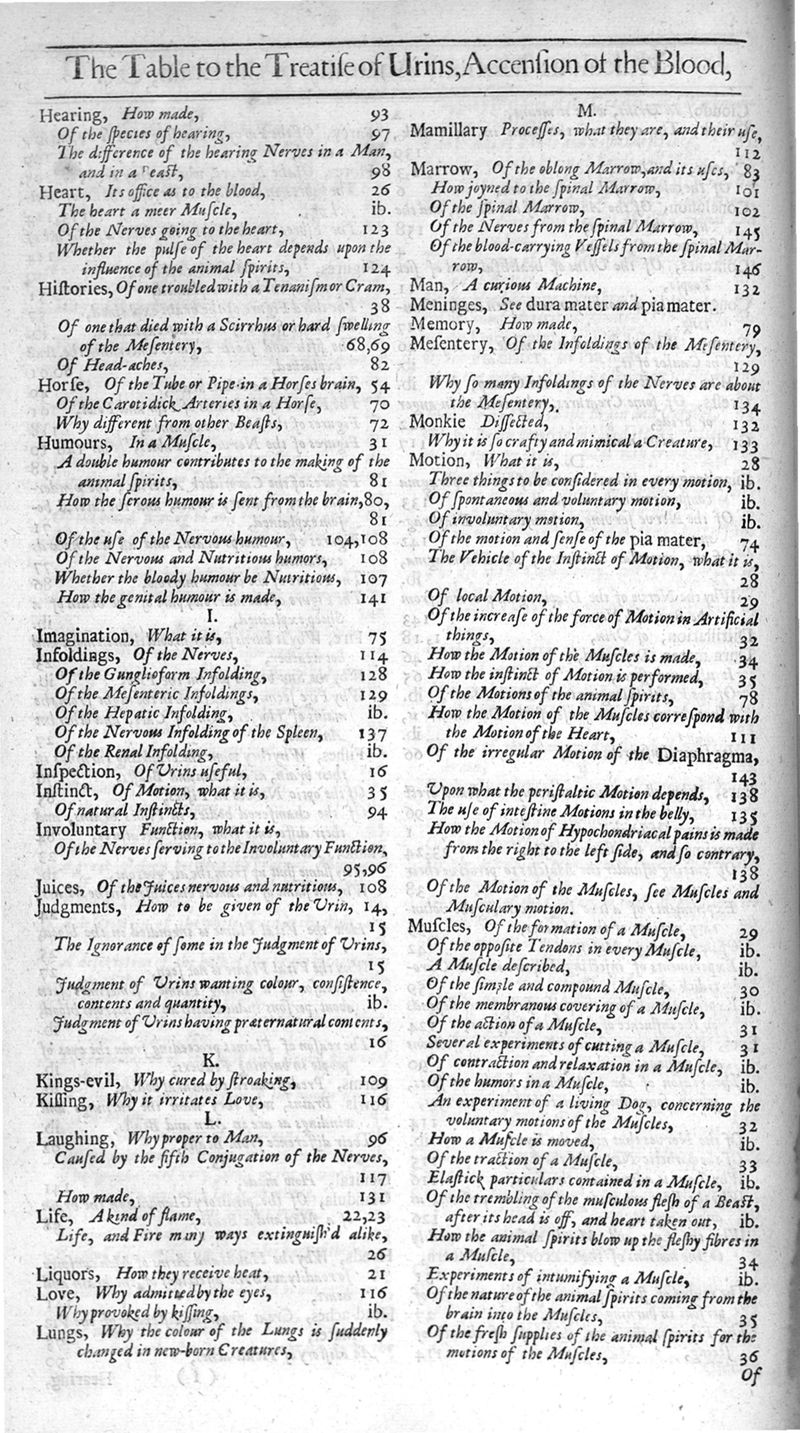 The Table to the Treatiſe of Urins, Accenſion of the Blood,
Hearing, How made, 93
Of the ſpecies of hearing, 97
The difference of the hearing Nerves in a Man,
and in a Beaſt, 98
Heart, Its office as to the blood, 26
The heart a meer Muſcle, ib.
Of the Nerves going to the heart, 123
Whether the pulſe of the heart depends upon the
influence of the animal ſpirits, 124
Hiſtories, Of one troubled with a Tenaniſm or Cram,
38
Of one that died with a Scirrhus or hard ſwelling
of the Meſentery, 68,69
Of Head-aches, 82
Horſe, Of the Tube or Pipe in a Horſes brain, 54
Of the Carotidick Arteries in a Horſe, 70
Why different from other Beaſts, 72
Humours, In a Muſcle, 31
A double humour contributes to the making of the
animal ſpirits, 81
How the ſerous humour is ſent from the brain,80,
81
Of the uſe of the Nervous humour, 104,108
Of the Nervous and Nutritious humors, 108
Whether the bloody humour be Nutritious, 107
How the genital humour is made, 141
I.
Imagination, What it is, 75
Infoldings, Of the Nerves, 114
Of the Gunglioform Infolding, 128
Of the Meſenteric Infoldings, 129
Of the Hepatic Infolding, ib.
Of the Nervous Infolding of the Spleen, 137
Of the Renal Infolding, ib.
Inſpection, Of Urins uſeful, 16
Inſtinct, Of Motion, what it is, 35
Of natural Inſtincts, 94
Involuntary Function, what it is,
Of the Nerves ſerving to the Involuntary Function,
95,96
Juices, Of the Juices nervous and nutritious, 108
Judgments, How to be given of the Urin, 14,
15
The Ignorance of ſome in the Judgment of Urins,
15
Judgment of Urins wanting colour, conſiſtence,
contents and quantity, ib.
Judgment of Urins having præternatural contents,
16
K.
Kings-evil, Why cured by ſtroaking, 109
Kiſſing, Why it irritates Love, 116
L.
Laughing, Why proper to Man, 96
Cauſed by the fifth Conjugation of the Nerves,
117
How made, 131
Life, A kind of flame, 22,23
Life, and Fire many ways extinguiſh'd alike,
26
Liquors, How they receive heat, 21
Love, Why admitted by the eyes, 116
Why provoked by kiſſing, ib.
Lungs, Why the colour of the Lungs is ſuddenly
changed in new-born Creatures,
M.
Mamillary Proceſſes, what they are, and their uſe,
112
Marrow, Of the oblong Marrow,and its uſes, 83
How joyned to the ſpinal Marrow, 101
Of the ſpinal Marrow, 102
Of the Nerves from the ſpinal Marrow, 145
Of the blood-carrying Veſſels from the ſpinal Mar-
row, 146
Man, A curious Machine, 132
Meninges, See dura mater and pia mater.
Memory, How made, 79
Meſentery, Of the Infoldings of the Meſentery,
129
Why ſo many Infoldings of the Nerves are about
the Meſentery, 134
Monkie Diſſected, 132
Why it is ſo crafty and mimical a Creature, 133
Motion, What it is, 28
Three things to be conſidered in every motion, ib.
Of ſpontaneous and voluntary motion, ib.
Of involuntary motion, ib.
Of the motion and ſenſe of the pia mater, 74
The Vehicle of the Inſtinct of Motion, what it is,
28
Of local Motion, 29
Of the increaſe of the force of Motion in Artificial
things, 32
How the Motion of the Muſcles is made, 34
How the inſtinct of Motion is performed, 35
Of the Motions of the animal ſpirits, 78
How the Motion of the Muſcles correſpond with
the Motion of the Heart, 111
Of the irregular Motion of the Diaphragma,
143
Upon what the periſtaltic Motion depends, 138
The uſe of inteſtine Motions in the belly, 135
How the Motion of Hypochondriacal pains is made
from the right to the left ſide, and ſo contrary,
138
Of the Motion of the Muſcles, ſee Muſcles and
Muſculary motion.
Muſcles, Of the formation of a Muſcle, 29
Of the oppoſite Tendons in every Muſcle, ib.
A Muſcle deſcribed, ib.
Of the ſimple and compound Muſcle, 30
Of the membranous covering of a Muſcle, ib.
Of the action of a Muſcle, 31
Several experiments of cutting a Muſcle, 31
Of contraction and relaxation in a Muſcle, ib.
Of the humors in a Muſcle, ib.
An experiment of a living Dog, concerning the
voluntary motions of the Muſcles, 32
How a Muſcle is moved, ib.
Of the traction of a Muſcle, 33
Elaſtick particulars contained in a Muſcle, ib.
Of the trembling of the muſculous fleſh of a Beaſt,
after its head is off, and heart taken out, ib.
How the animal ſpirits blow up the fleſhy fibres in
a Muſcle, 34
Experiments of intumifying a Muſcle, ib.
Of the nature of the animal ſpirits coming from the
brain into the Muſcles, 35
Of the freſh ſupplies of the animal ſpirits for the
motions of the Muſcles, 36
Of